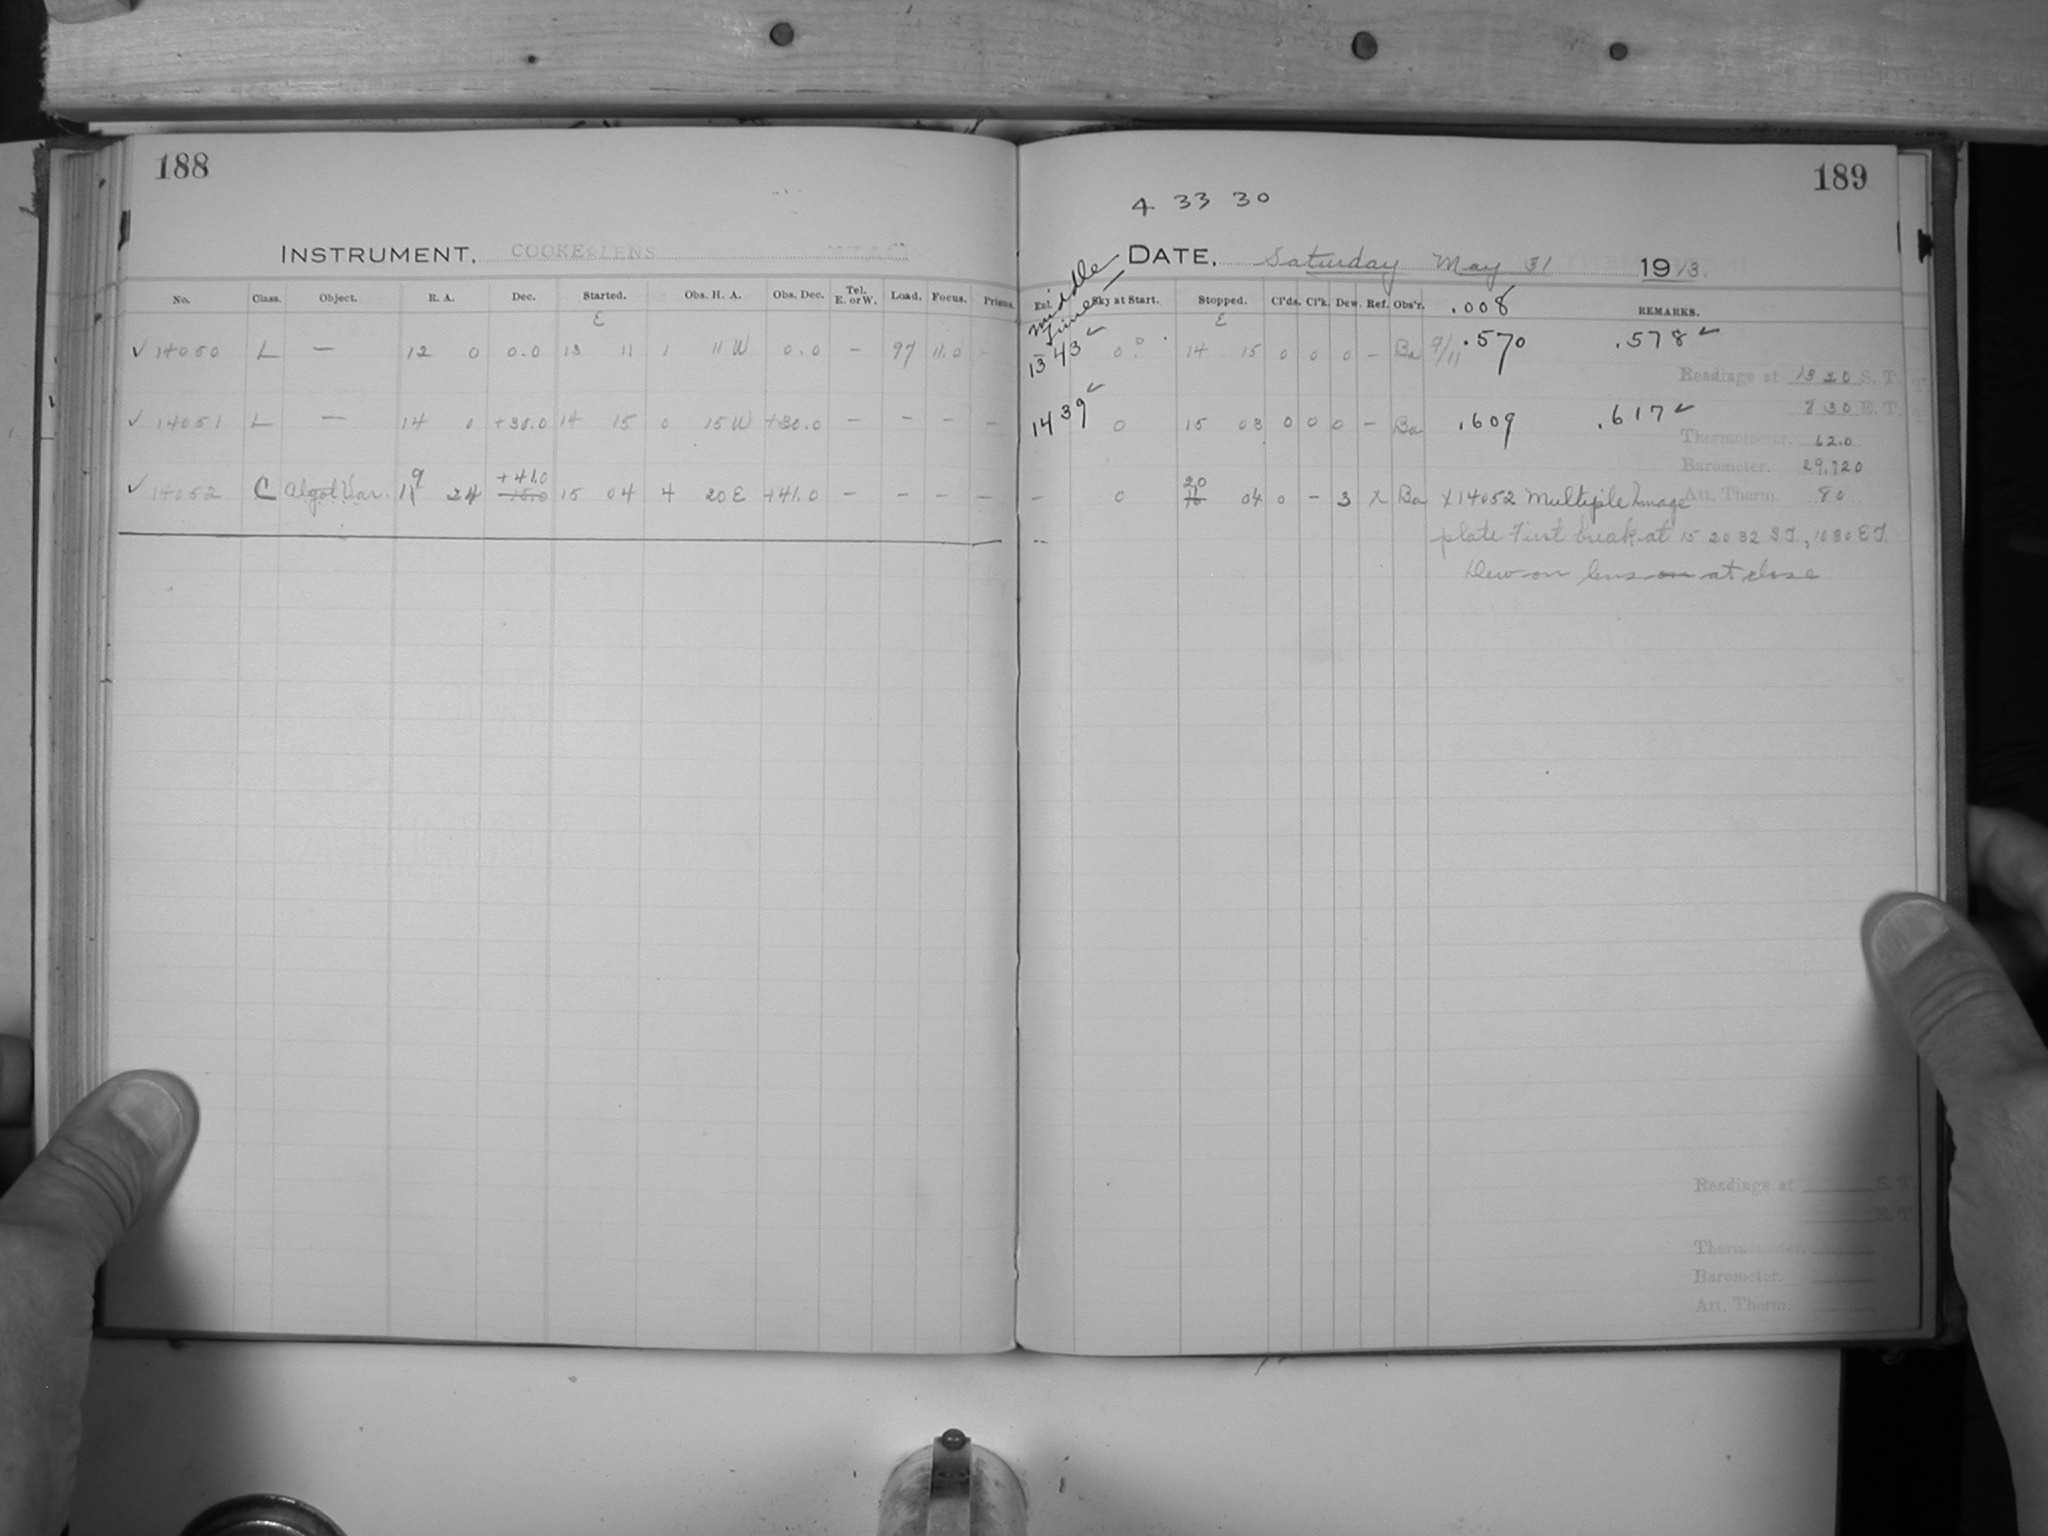 188
INSTRUMENT. COOKE LENS
No. Class. Object. R. A. Dec. Started. Obs. H. A. Obs. Dec. Tel. E. or W. Load. Focus. Prisms.
E
✓ 14050 L — 12 0 0.0 13 11 1 11 W 0.0 — 97 11.0 —
✓ 14051 L — 14 0 +30.0 14 15 0 15 W +30.0 — — — —
+41.0
✓ 14052 C Algol Var. 19 24 15.0 15 04 4 20 E +41.0 — — — —
189
4 33 30
DATE. Saturday May 31 1913.
Middle Time
Exl. Sky at Start. Stopped. Cl'ds. Cl'k. Dew. Ref. Obs'r. .008 REMARKS.
E
13 43 ✓ 0? 14 15 0 0 0 — Ba 9/11 .570 .578 ✓
Readings at 13 20 S. T.
8 30 E. T.
14 39 ✓ 0 15 03 0 0 0 — Ba .609 .617 ✓
Thermometer. 62.0
Barometer. 29.720
20
— 0 04 0 — 3 x Ba x 14052 Multiple Image Att. Therm. 80
plate First break at 15 20 32 S.T., 10 30 E.T.
Dew on lens on at close
Readings at S. T.
E. T.
Thermometer.
Barometer.
Att. Therm.